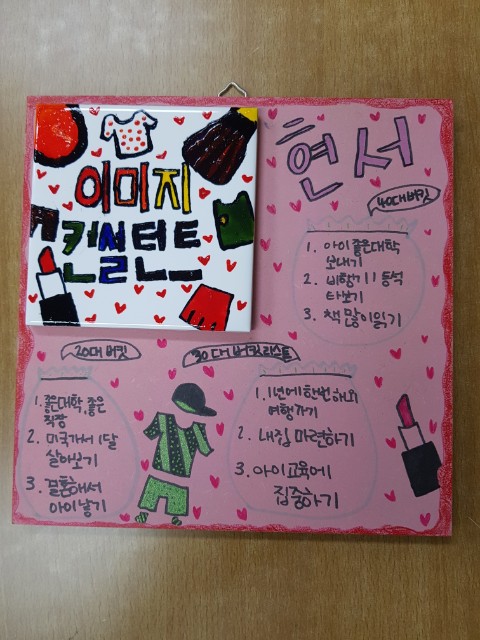 이미지
컨설턴트
현서
40대 버킷
1. 아이 좋은대학
보내기
2. 비행기 1등석
타보기
3. 책 많이읽기
20대 버킷
1. 좋은대학, 좋은
직장
2. 미국가서 1달
살아보기
3. 결혼해서
아이낳기
30대 버킷리스트
1. 1년에 한번 해외
여행가기
2. 내집 마련하기
3. 아이교육에
집중하기